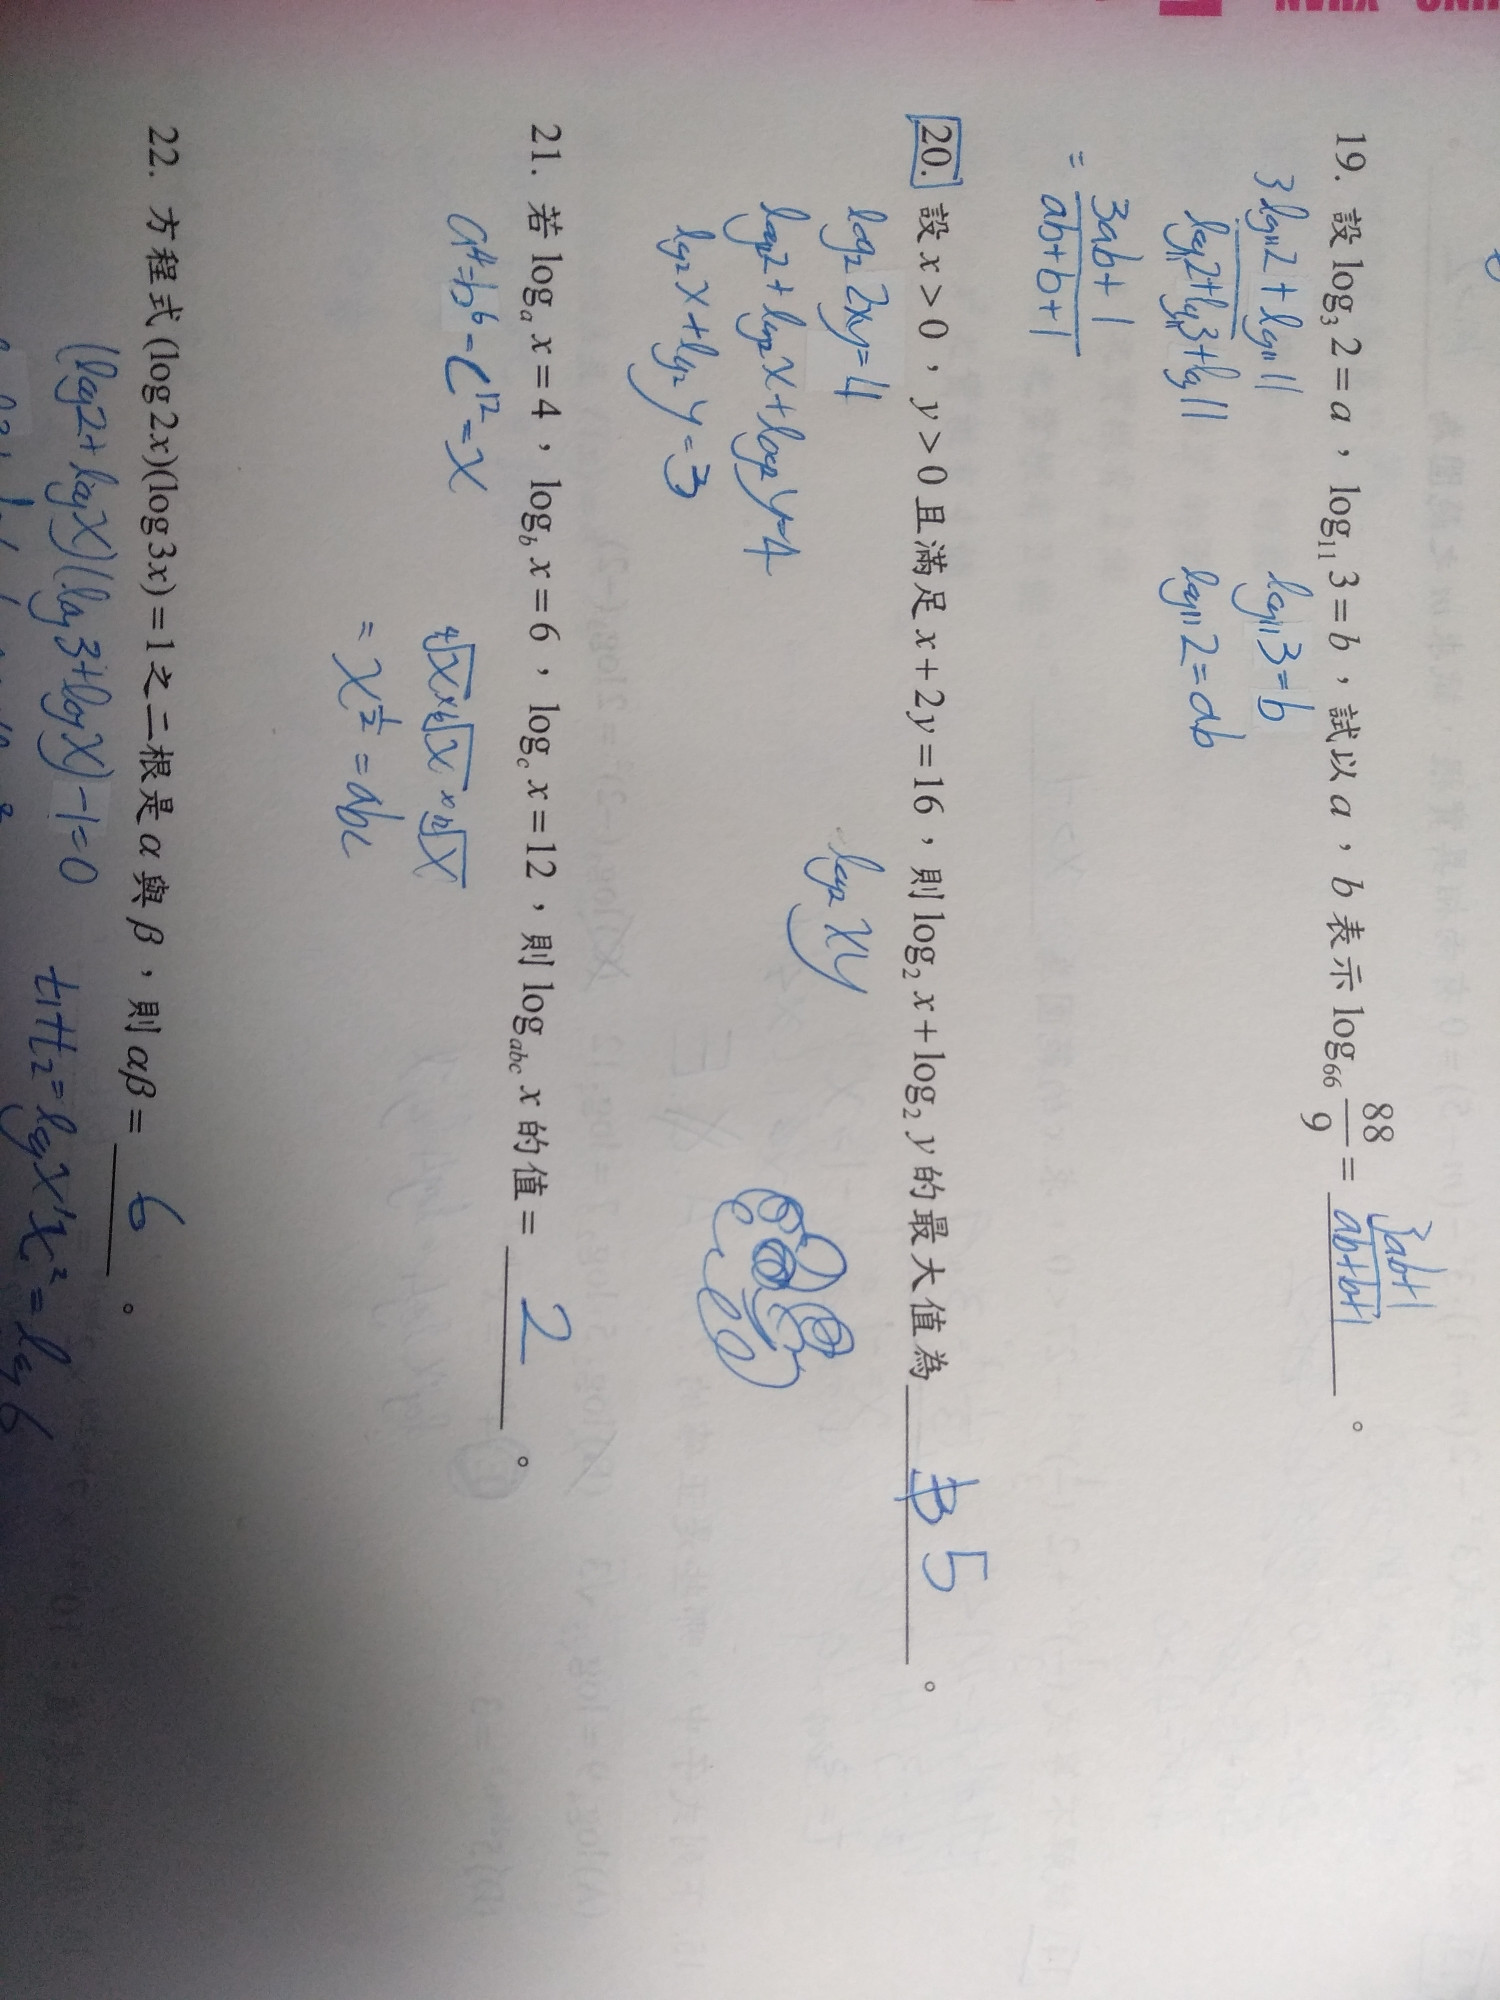 19. 設 log₃ 2 = a，log₁₁ 3 = b，試以 a，b 表示 log₆₆ 88/9 = (3ab+1)/(ab+b+1)。
3log₁₁2 + log₁₁11
log₁₁2+log₁₁3+log₁₁11
log₁₁3=b
log₁₁2=ab
= (3ab+1)/(ab+b+1)
20. 設 x > 0，y > 0 且滿足 x + 2y = 16，則 log₂ x + log₂ y 的最大值為 5。
log₂ 2xy = 4
log₂2 + log₂x + log₂y=4
log₂x + log₂y = 3
log₂ xy
21. 若 logₐ x = 4，log_b x = 6，log_c x = 12，則 log_abc x 的值 = 2。
a⁴=b⁶=c¹²=x
⁴√x × ⁶√x × ¹²√x
= x^(1/2) = abc
22. 方程式 (log 2x)(log 3x) = 1 之二根是 α 與 β，則 αβ = 6。
(log2+logx)(log3+logx)-1=0